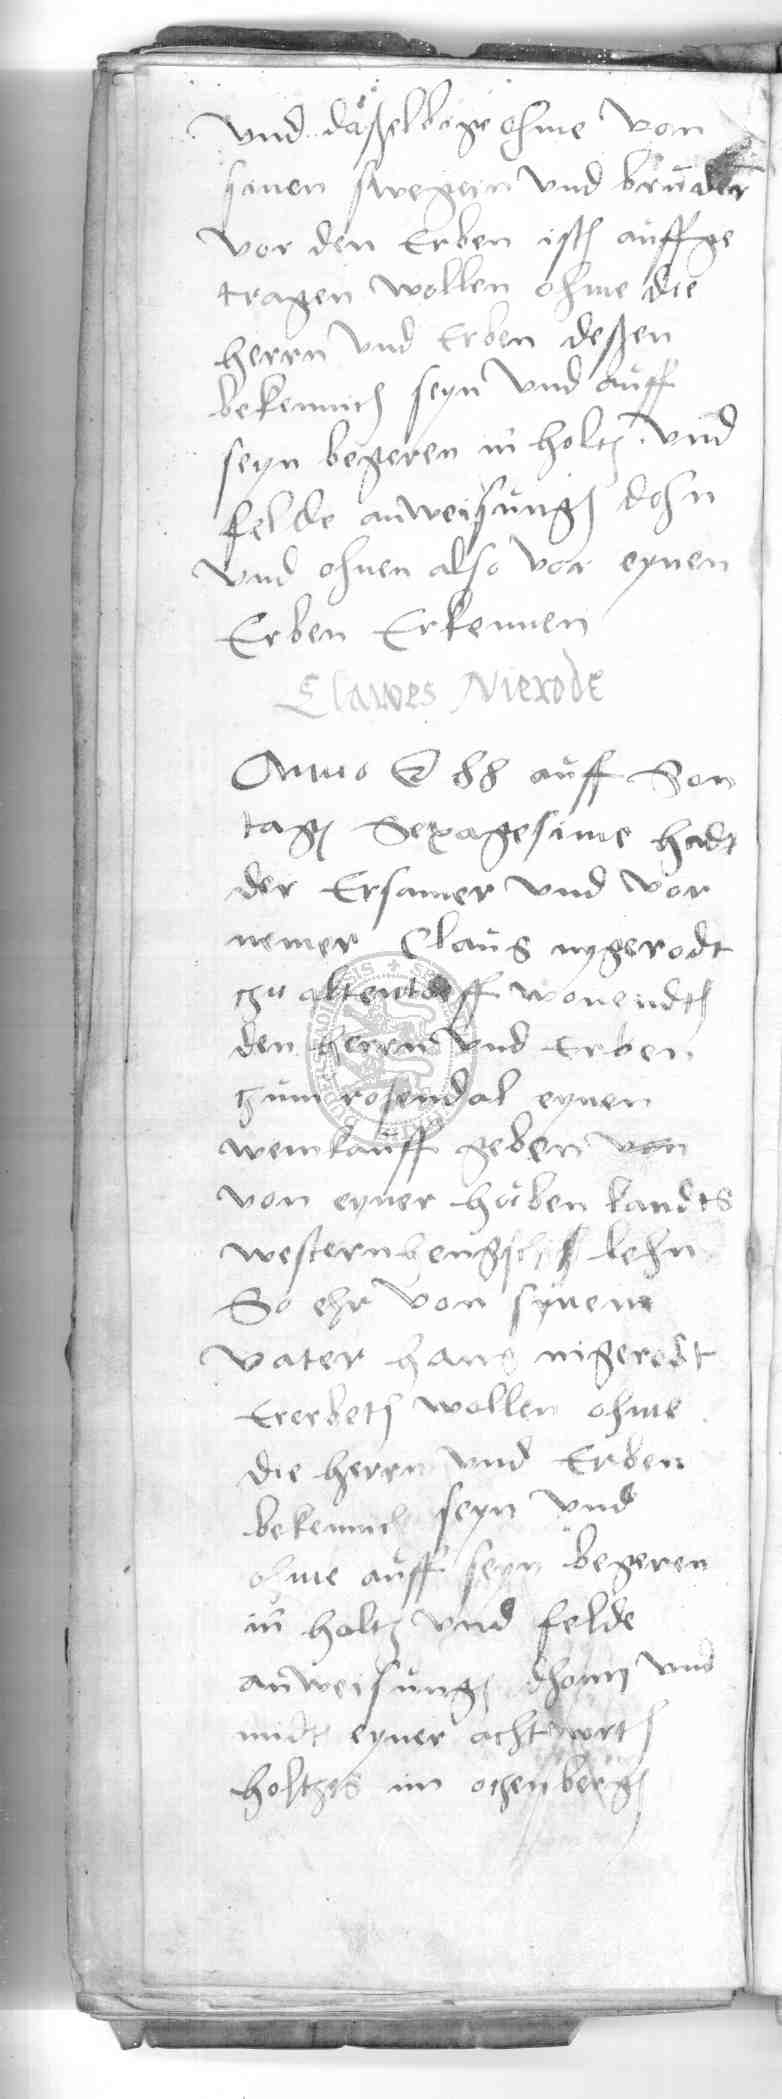 Vnd daßelbige ohme von
sinen swegern vnd brüder
vor den Erben isth auffge
tragen wollen ohme die
herrn vnd Erben deßen
bekennich seyn vnd auff
seyn begeren in holtz vnd
felde anweisung dohn
vnd ohnen also vor eynen
Erben Erkennen
Clawes Nierode
Anno 88 auff Son
tag Sexagesime hadt
der Ersamer vnd vor
nemer Claus nygerodt
zu altendorff wonendt
den herrn vnd Erben
zum rosendal eynen
weinkauff geben von
von eyner hüben landts
lehn
So ehr von synem
vater hans nigerodt
Ererbeth wollen ohme
die herrn vnd Erben
bekennich seyn vnd
ohme auff seyn begeren
in holtz vnd felde
anweisung dhonn vnd
midt eyner achtwrth
holtzes im